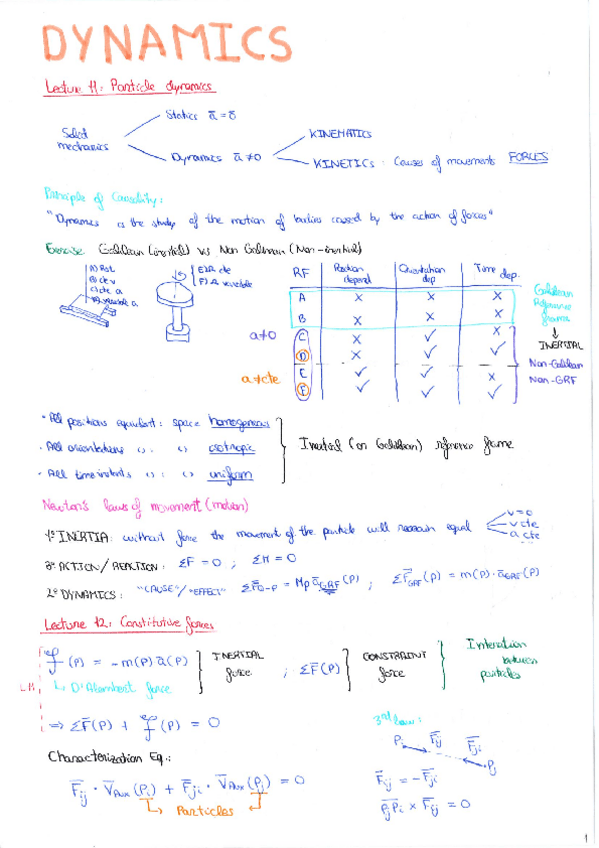 DYNAMICS
Lecture 11: Particle dynamics
Solid mechanics
Statics ā = 0̄
Dynamics ā ≠ 0
KINEMATICS
KINETICS : Causes of movements FORCES
Principle of Causality:
"Dynamics is the study of the motion of bodies caused by the action of forces"
Exercise Galilean (inertial) vs Non Galilean (Non-inertial)
A) Rest
B) cte v
C) cte a
D) variable a
E) Ω cte
F) Ω variable
RF Position depend Orientation dep Time dep.
A x x x
B x x x
C x ✓ x
D x ✓ ✓
E ✓ ✓ x
F ✓ ✓ ✓
a≠0
a≠cte
Galilean Reference frames
↓
INERTIAL
Non-Galilean
Non-GRF
· All positions equivalent: space homogeneous
· All orientations (): () isotropic
· All time instants (): () uniform
Inertial (or Galilean) reference frame
Newton's laws of movement (motion)
1º INERTIA: without force the movement of the particle will remain equal
v=0
v cte
a cte
3º ACTION/REACTION: ΣF = 0 ; ΣM = 0
2º DYNAMICS: "CAUSE"/"EFFECT" ΣF̄O-P = Mp ā GRF (P) ; ΣF̄GRF (P) = m(P)·āGRF(P)
Lecture 12: Constitutive forces
(P) = -m(P) ā(P)
INERTIAL force
; ΣF̄(P)
CONSTRAINT force
Interaction between particles
L D'Alambert force
⇒ ΣF̄(P) + (P) = 0
3rd law:
Pi F̄ij F̄ji Pj
Characterization Eq.:
F̄ij = -F̄ji
F̄ij · V̄Aux (Pi) + F̄ji · V̄Aux (Pj) = 0
PjPi × F̄ij = 0
Particles
1